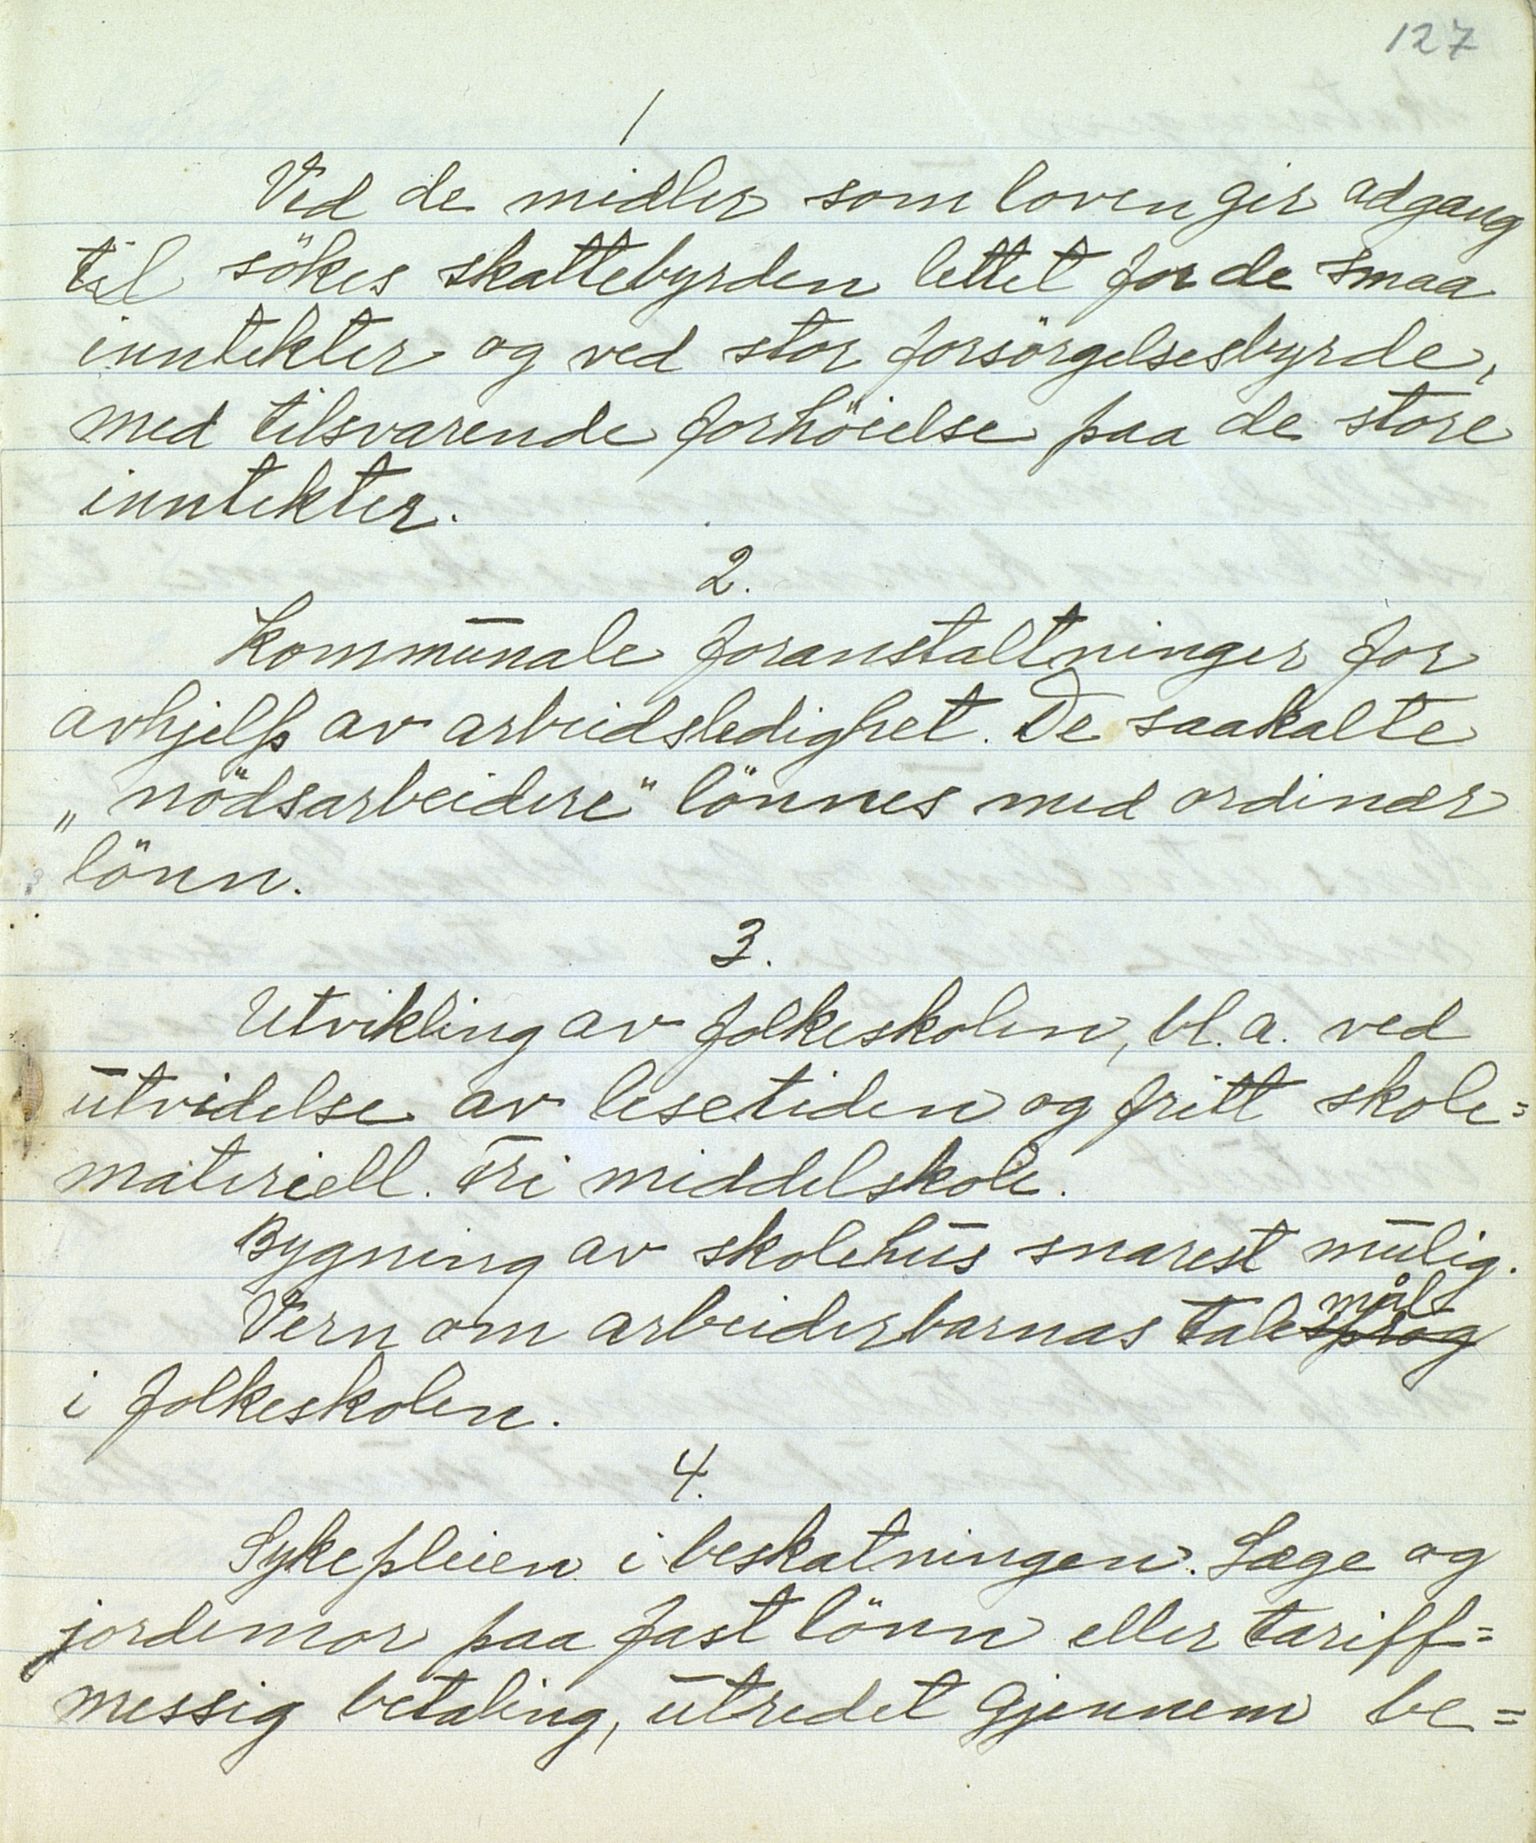 127
1
Ved de midler som loven gir adgang
til sökes skattebyrden lettet for de smaa
inntekter og ved stor forsörgelsesbyrde,
med tilsvarende forhöielse paa de store
inntekter.
2.
Kommunale foranstaltninger for
avhjelp av arbeidsledighet. De saakalte
„nödsarbeidere" lönnes med ordinær
lönn.
3.
Utvikling av folkeskolen, bl. a. ved
utvidelse av lesetiden og fritt skole=
materiell. Fri middelskole.
Bygning av skolehus snarest mulig.
mål
Vern om arbeiderbarnas talesprog
i folkeskolen.
4.
Sykepleien i beskatningen. Læge og
jordemor paa fast lönn eller tariff=
messig betaling, utredet gjennem be=